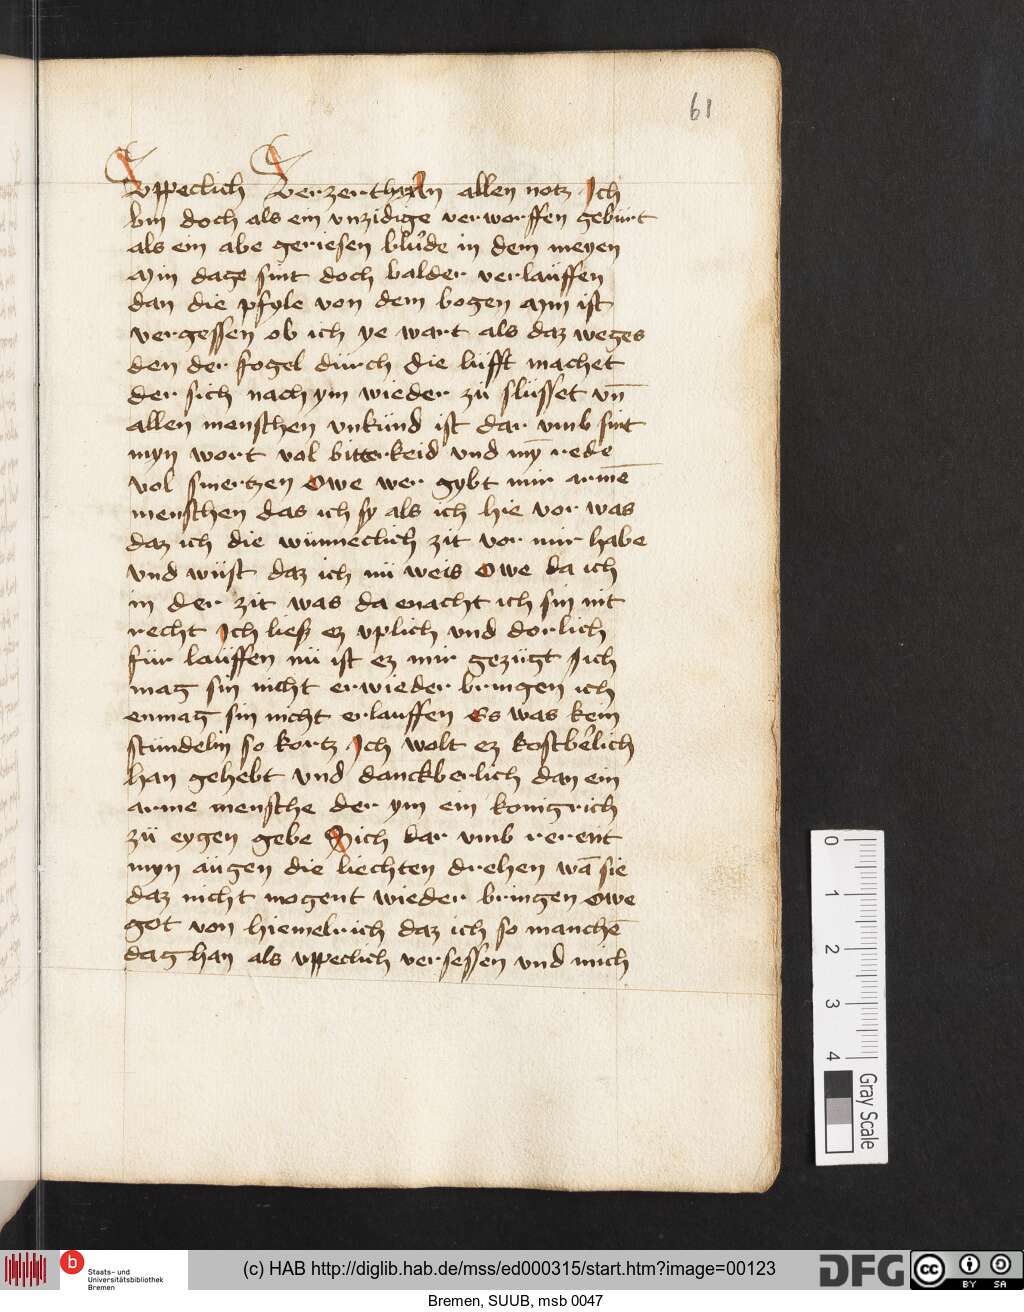 61
vppeclich verzert han allen notz Ich
bin doch als ein vnzidige verworffen gebürt
als ein abe geriesen blůde in dem meyen
Min dage sint doch balder verlauffen
dan die pfyle von dem bogen Min ist
vergessen ob ich ye wart als daz weges
den der fogel dürch die lüfft machet
der sich nach ym wieder zü slüsset vn̄
allen menschen vnkünd ist dar vmb sint
myn wort vol bitterkeid vnd my̅ rede
vol smertzen Owe wer gybt mir arme̅
menschen das ich sy als ich hie vor was
daz ich die wünneclich zit vor mir habe
vnd wüst daz ich nü weis Owe da ich
in der zit was da enacht ich sin nit
recht Ich ließ ez vplich vnd dorlich
für lauffen nü ist ez mir gezügt Ich
mag sin nicht erwieder bringen ich
enmag sin nicht erlauffen Es was kein
stündelin so kortz Ich wolt ez kostbe̓lich
han gehebt vnd danckberlich dan ein
arme mensche der ym ein konigrich
zü eygen gebe Sich dar vmb rerent
myn augen die liechten drehen wā sie
daz nicht mogent wieder bringen owe
got von hiemelrich daz ich so manche̅
dag han als vppeclich versessen vnd mich
0
1
2
3
4
Gray Scale
b
Staats- und
Universitätsbibliothek
Bremen
(c) HAB http://diglib.hab.de/mss/ed000315/start.htm?image=00123
DFG
cc
BY SA
Bremen, SUUB, msb 0047